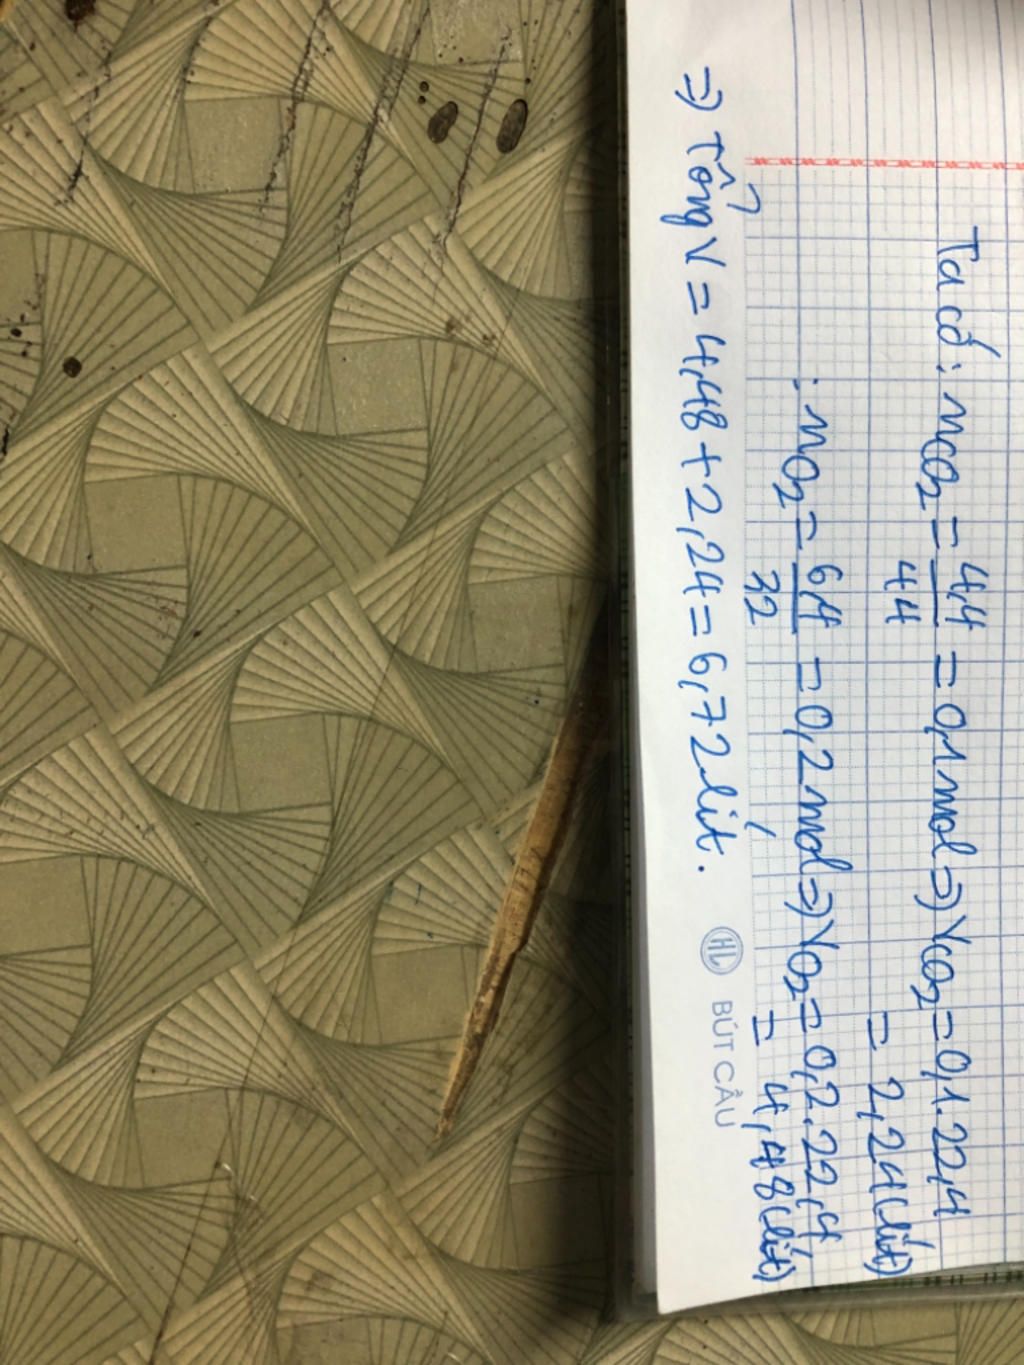 Ta có: nCO₂ = 4,4/44 = 0,1 mol => VCO₂ = 0,1.22,4
= 2,24 (lít)
: nO₂ = 6,4/32 = 0,2 mol => VO₂ = 0,2.22,4
= 4,48 (lít)
=> Tổng V = 4,48 + 2,24 = 6,72 lít.
HL BÚT CẦU